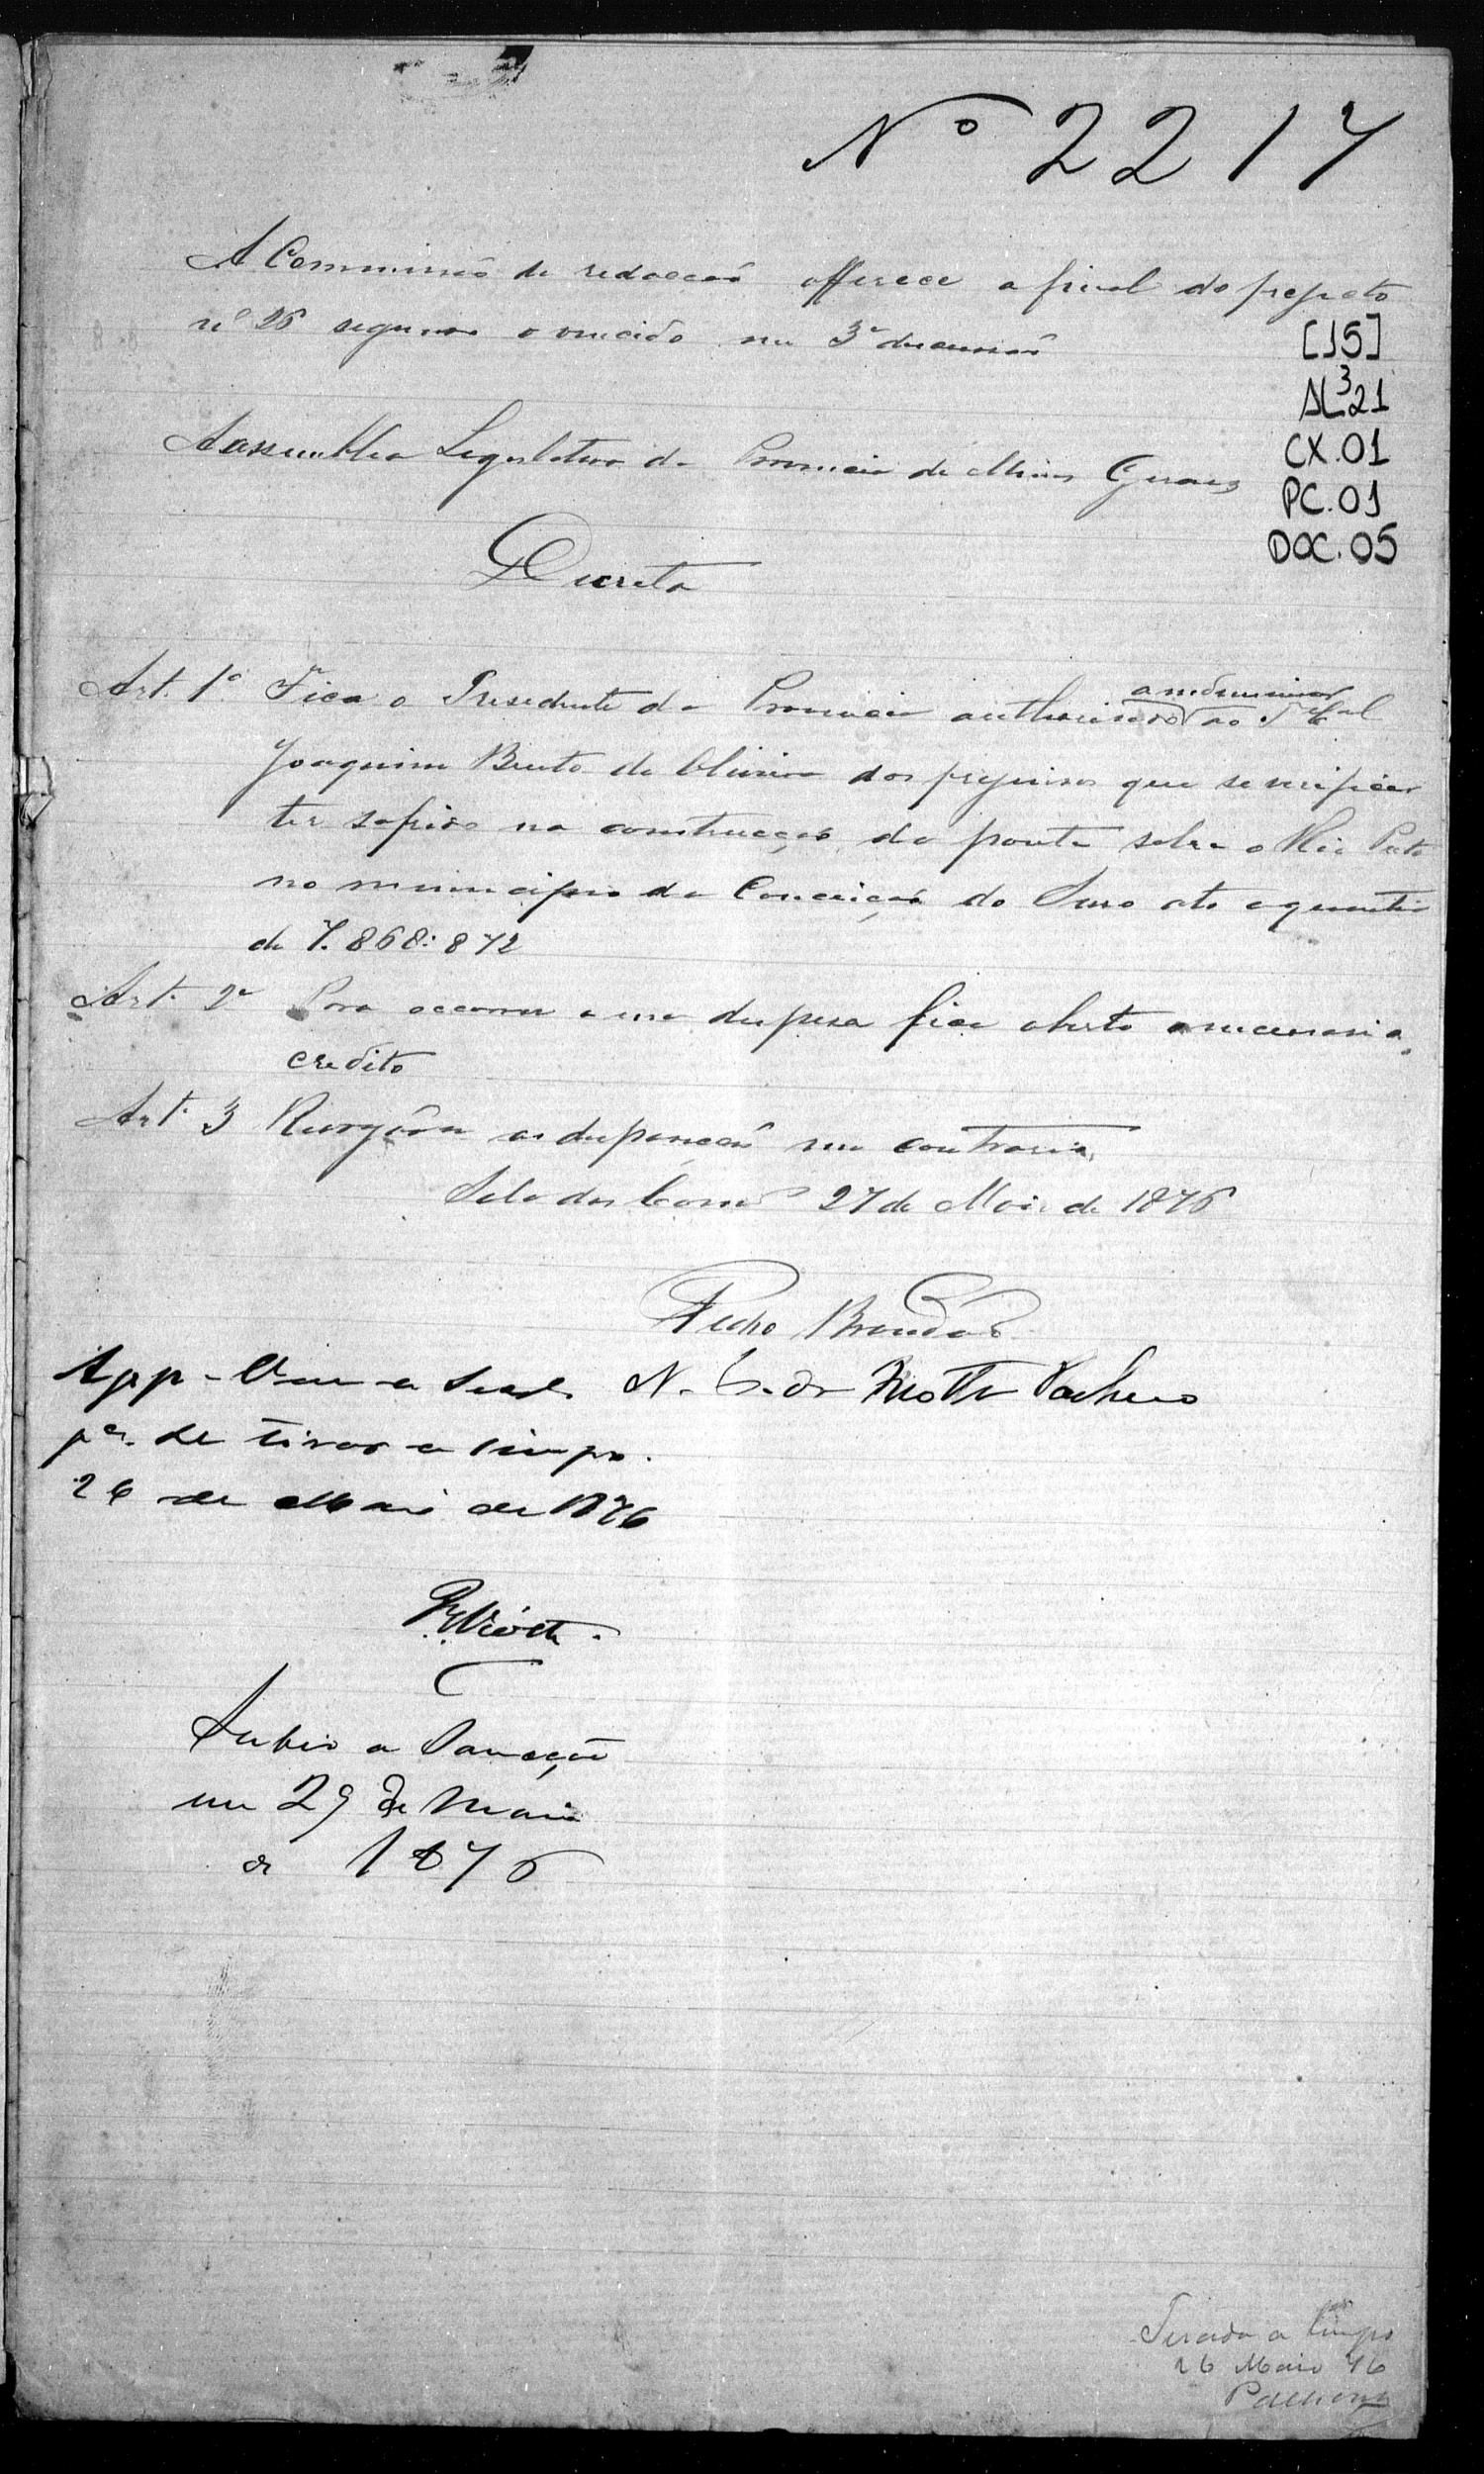 Nº 2217
A Commissão de redacção offerece a final do projecto
nº 26 segundo o vencido em 3ª discussão
[15]
AL³21
CX.01
PC.01
DOC.05
A assemblea Legislativa da Provincia de Minas Geraes
Decreta
Art. 1º Fica o Presidente da Provincia authorisado a indemnisar ao Tel Cel
Joaquim Bento de Oliveira dos prejuisos que se verificar
ter sofrido na construcção da ponte sobre o Rio Preto
no municipio da Conceição do Serro até a quantia
de 7.868:872
Art. 2º Para occorrer a essa despesa fica aberto o necessario
credito
Art. 3 Revogão-se as disposições em contrario
Sala das Comões 27 de Maio de 1876
Pedro Brandão
N. C. da Motta Pacheco
App - Vai a Secr.
pa. se tirar a limpo.
26 de Maio de 1876
Subio a Sancção
em 29 de Maio
de 1876
Tirada a limpo
26 Maio 76
Pacheco